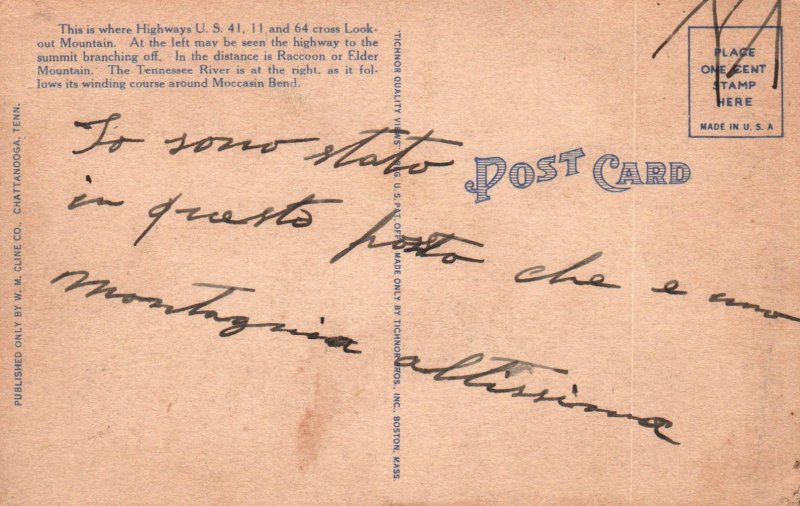 This is where Highways U. S. 41, 11 and 64 cross Look-
out Mountain. At the left may be seen the highway to the
summit branching off. In the distance is Raccoon or Elder
Mountain. The Tennessee River is at the right, as it fol-
lows its winding course around Moccasin Bend.
PUBLISHED ONLY BY W. M. CLINE CO., CHATTANOOGA, TENN.
"TICHNOR QUALITY VIEWS," REG. U. S. PAT. OFF. MADE ONLY BY TICHNOR BROS., INC., BOSTON, MASS.
POST CARD
PLACE
ONE CENT
STAMP
HERE
MADE IN U. S. A
Io sono stato
in questo posto che e uno
montagnia altissima